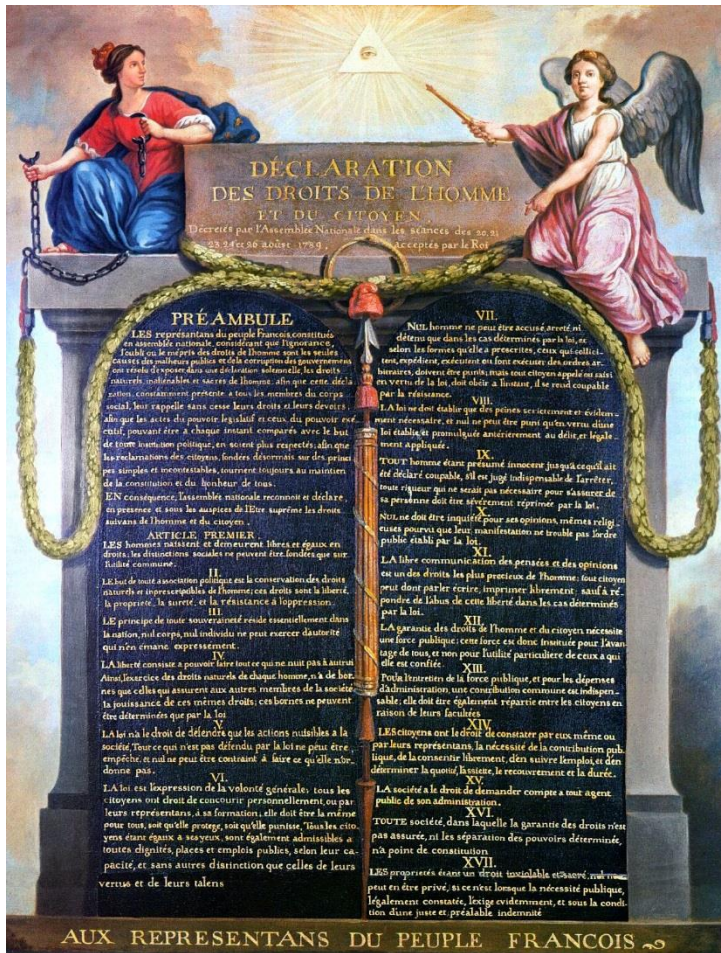 DÉCLARATION
DES DROITS DE L'HOMME
ET DU CITOYEN,
Décretés par l'Assemblée Nationale dans les séances des 20, 21
23, 24 et 26 août 1789, Acceptés par le Roi
PRÉAMBULE
LES représantans du peuple François, constitués
en assemblée nationale, considérant que l'ignorance,
l'oubli ou le mépris des droits de l'homme sont les seules
causes des malheurs publics et de la corruption des gouvernemens
ont résolu d'exposer dans une déclaration solemnelle, les droits
naturels, inaliénables et sacrés de l'homme; afin que cette décla
ration, constamment présente a tous les membres du corps
social, leur rappelle sans cesse leurs droits et leurs devoirs,
afin que les actes du pouvoir législatif et ceux du pouvoir exé
cutif, pouvant être a chaque instant comparés avec le but
de toute institution politique, en soient plus respectés; afin que
les reclamations des citoyens, fondées désormais sur des princi
pes simples et incontestables, tournent toujours au maintien
de la constitution et du bonheur de tous.
EN conséquence, l'assemblée nationale reconnoit et déclare,
en presence et sous les auspices de l'Etre suprême les droits
suivans de l'homme et du citoyen.
ARTICLE PREMIER.
LES hommes naissent et demeurent libres et égaux en
droits; les distinctions sociales ne peuvent être fondées que sur
l'utilité commune.
II.
LE but de toute association politique est la conservation des droits
naturels et inprescriptibles de l'homme; ces droits sont la liberté,
la propriete, la sureté, et la résistance à l'oppression.
III.
LE principe de toute souveraineté réside essentiellement dans
la nation, nul corps, nul individu ne peut exercer d'autorité
qui n'en émane expressement.
IV
LA liberté consiste a pouvoir faire tout ce qui ne nuit pas à autrui
Ainsi, l'exercice des droits naturels de chaque homme, n'a de bor-
nes que celles qui assurent aux autres membres de la société
la jouissance de ces mêmes droits; ces bornes ne peuvent
être déterminées que par la loi
V.
LA loi n'a le droit de défendre que les actions nuisibles a la
société, Tout ce qui n'est pas défendu par la loi ne peut être
empêché, et nul ne peut être contraint à faire ce qu'elle n'or-
donne pas.
VI.
LA loi est l'expression de la volonté générale; tous les
citoyens ont droit de concourir personnellement, ou par
leurs représentans, à sa formation; elle doit être la même
pour tous, soit qu'elle protege, soit qu'elle punisse, Tous les cito
yens étant égaux a ses yeux, sont également admissibles a
toutes dignités, places et emplois publics, selon leur ca
pacité, et sans autres distinction que celles de leurs
vertus et de leurs talens
VII.
NUL homme ne peut être accusé, arreté, ni
détenu que dans les cas déterminés par la loi, et
selon les formes qu'elle a prescrites, ceux qui sollici-
tent, expédient, exécutent ou font exécuter des ordres ar-
bitraires, doivent être punis; mais tout citoyen appelé ou saisi
en vertu de la loi, doit obéir a l'instant, il se rend coupable
par la résistance.
VIII.
LA loi ne doit établir que des peines strictement et évidem-
ment nécessaire, et nul ne peut être puni qu'en vertu d'une
loi établie et promulguée antérierement au délit, et légale-
ment appliquée.
IX.
TOUT homme étant présumé innocent jusqu'a ce qu'il ait
été déclaré coupable, s'il est jugé indispensable de l'arrêter,
toute rigueur qui ne serait pas nécessaire pour s'assurer de
sa personne doit être sévèrement réprimée par la loi.
X.
NUL ne doit être inquiété pour ses opinions, mêmes religi-
euses pourvu que leur manifestation ne trouble pas l'ordre
public établi par la loi.
XI.
LA libre communication des pensées et des opinions
est un des droits les plus precieux de l'homme; tout citoyen
peut dont parler écrire, imprimer librement; sauf à ré-
pondre de l'abus de cette liberté dans les cas déterminés
par la loi.
XII.
LA garantie des droits de l'homme et du citoyen nécessite
une force publique; cette force est donc instituée pour l'avan-
tage de tous, et non pour l'utilité particuliere de ceux a qui
elle est confiée.
XIII.
Pour l'entretien de la force publique, et pour les dépenses
d'administration, une contribution commune est indispen-
sable; elle doit être également répartie entre les citoyens en
raison de leurs facultées
XIV.
LES citoyens ont le droit de constater par eux même ou
par leurs représentans, la nécessité de la contribution pub-
lique, de la consentir librement, d'en suivre l'emploi, et d'en
déterminer la quotité, l'assiette, le recouvrement et la durée.
XV.
LA société a le droit de demander compte a tout agent
public de son administration.
XVI.
TOUTE société, dans laquelle la garantie des droits n'est
pas assurée, ni les séparation des pouvoirs déterminée,
n'a point de constitution
XVII.
LES proprietés étant un droit inviolable et sacré, nul ne
peut en être privé, si ce n'est lorsque la nécessité publique,
légalement constatée, l'exige evidemment, et sous la condi-
tion d'une juste et préalable indemnité
AUX REPRESENTANS DU PEUPLE FRANCOIS